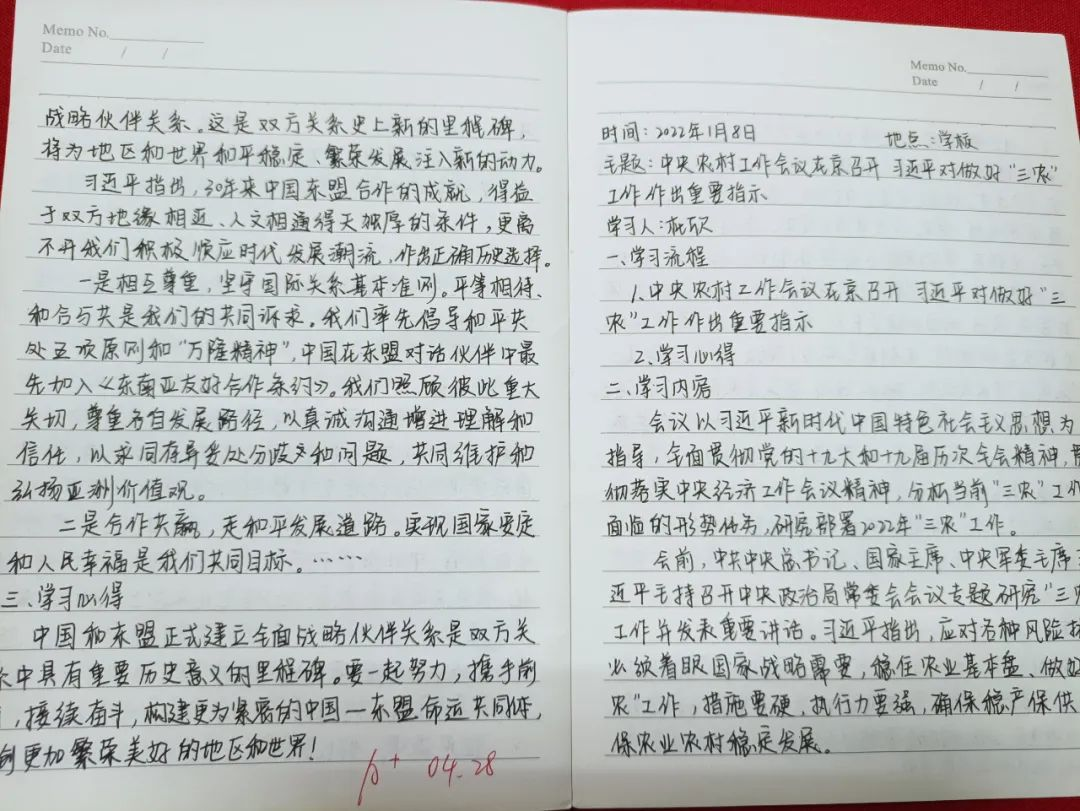 Memo No.
Date / /
战略伙伴关系。这是双方关系史上新的里程碑,
将为地区和世界和平稳定、繁荣发展注入新的动力。
习近平指出,30年来中国东盟合作的成就,得益
于双方地缘相近、人文相通得天独厚的条件,更离
不开我们积极顺应时代发展潮流,作出正确历史选择。
一是相互尊重,坚守国际关系基本准则。平等相待、
和合与共是我们的共同诉求。我们率先倡导和平共
处五项原则和“万隆精神”,中国在东盟对话伙伴中最
先加入《东南亚友好合作条约》。我们照顾彼此重大
关切,尊重各自发展路径,以真诚沟通增进理解和
信任,以求同存异妥处分歧和问题,共同维护和
弘扬亚洲价值观。
二是合作共赢,走和平发展道路。实现国家安定
和人民幸福是我们共同目标。……
三、学习心得
中国和东盟正式建立全面战略伙伴关系是双方关
中具有重要历史意义的里程碑。要一起努力,携手前
,接续奋斗,构建更为紧密的中国—东盟命运共同体,
创更加繁荣美好的地区和世界!
04.28
Memo No.
Date / /
时间:2022年1月8日 地点:学校
主题:中央农村工作会议在京召开 习近平对做好“三农”
工作作出重要指示
学习人:
一、学习流程
1.中央农村工作会议在京召开 习近平对做好“三
农”工作作出重要指示
2.学习心得
二、学习内容
会议以习近平新时代中国特色社会主义思想为
指导,全面贯彻党的十九大和十九届历次全会精神,贯
彻落实中央经济工作会议精神,分析当前“三农”工作
面临的形势任务,研究部署2022年“三农”工作。
会前,中共中央总书记、国家主席、中央军委主席
近平主持召开中央政治局常委会会议专题研究“三农
工作并发表重要讲话。习近平指出,应对各种风险挑
必须着眼国家战略需要,稳住农业基本盘、做好
农”工作,措施要硬,执行力要强,确保稳产保供
保农业农村稳定发展。